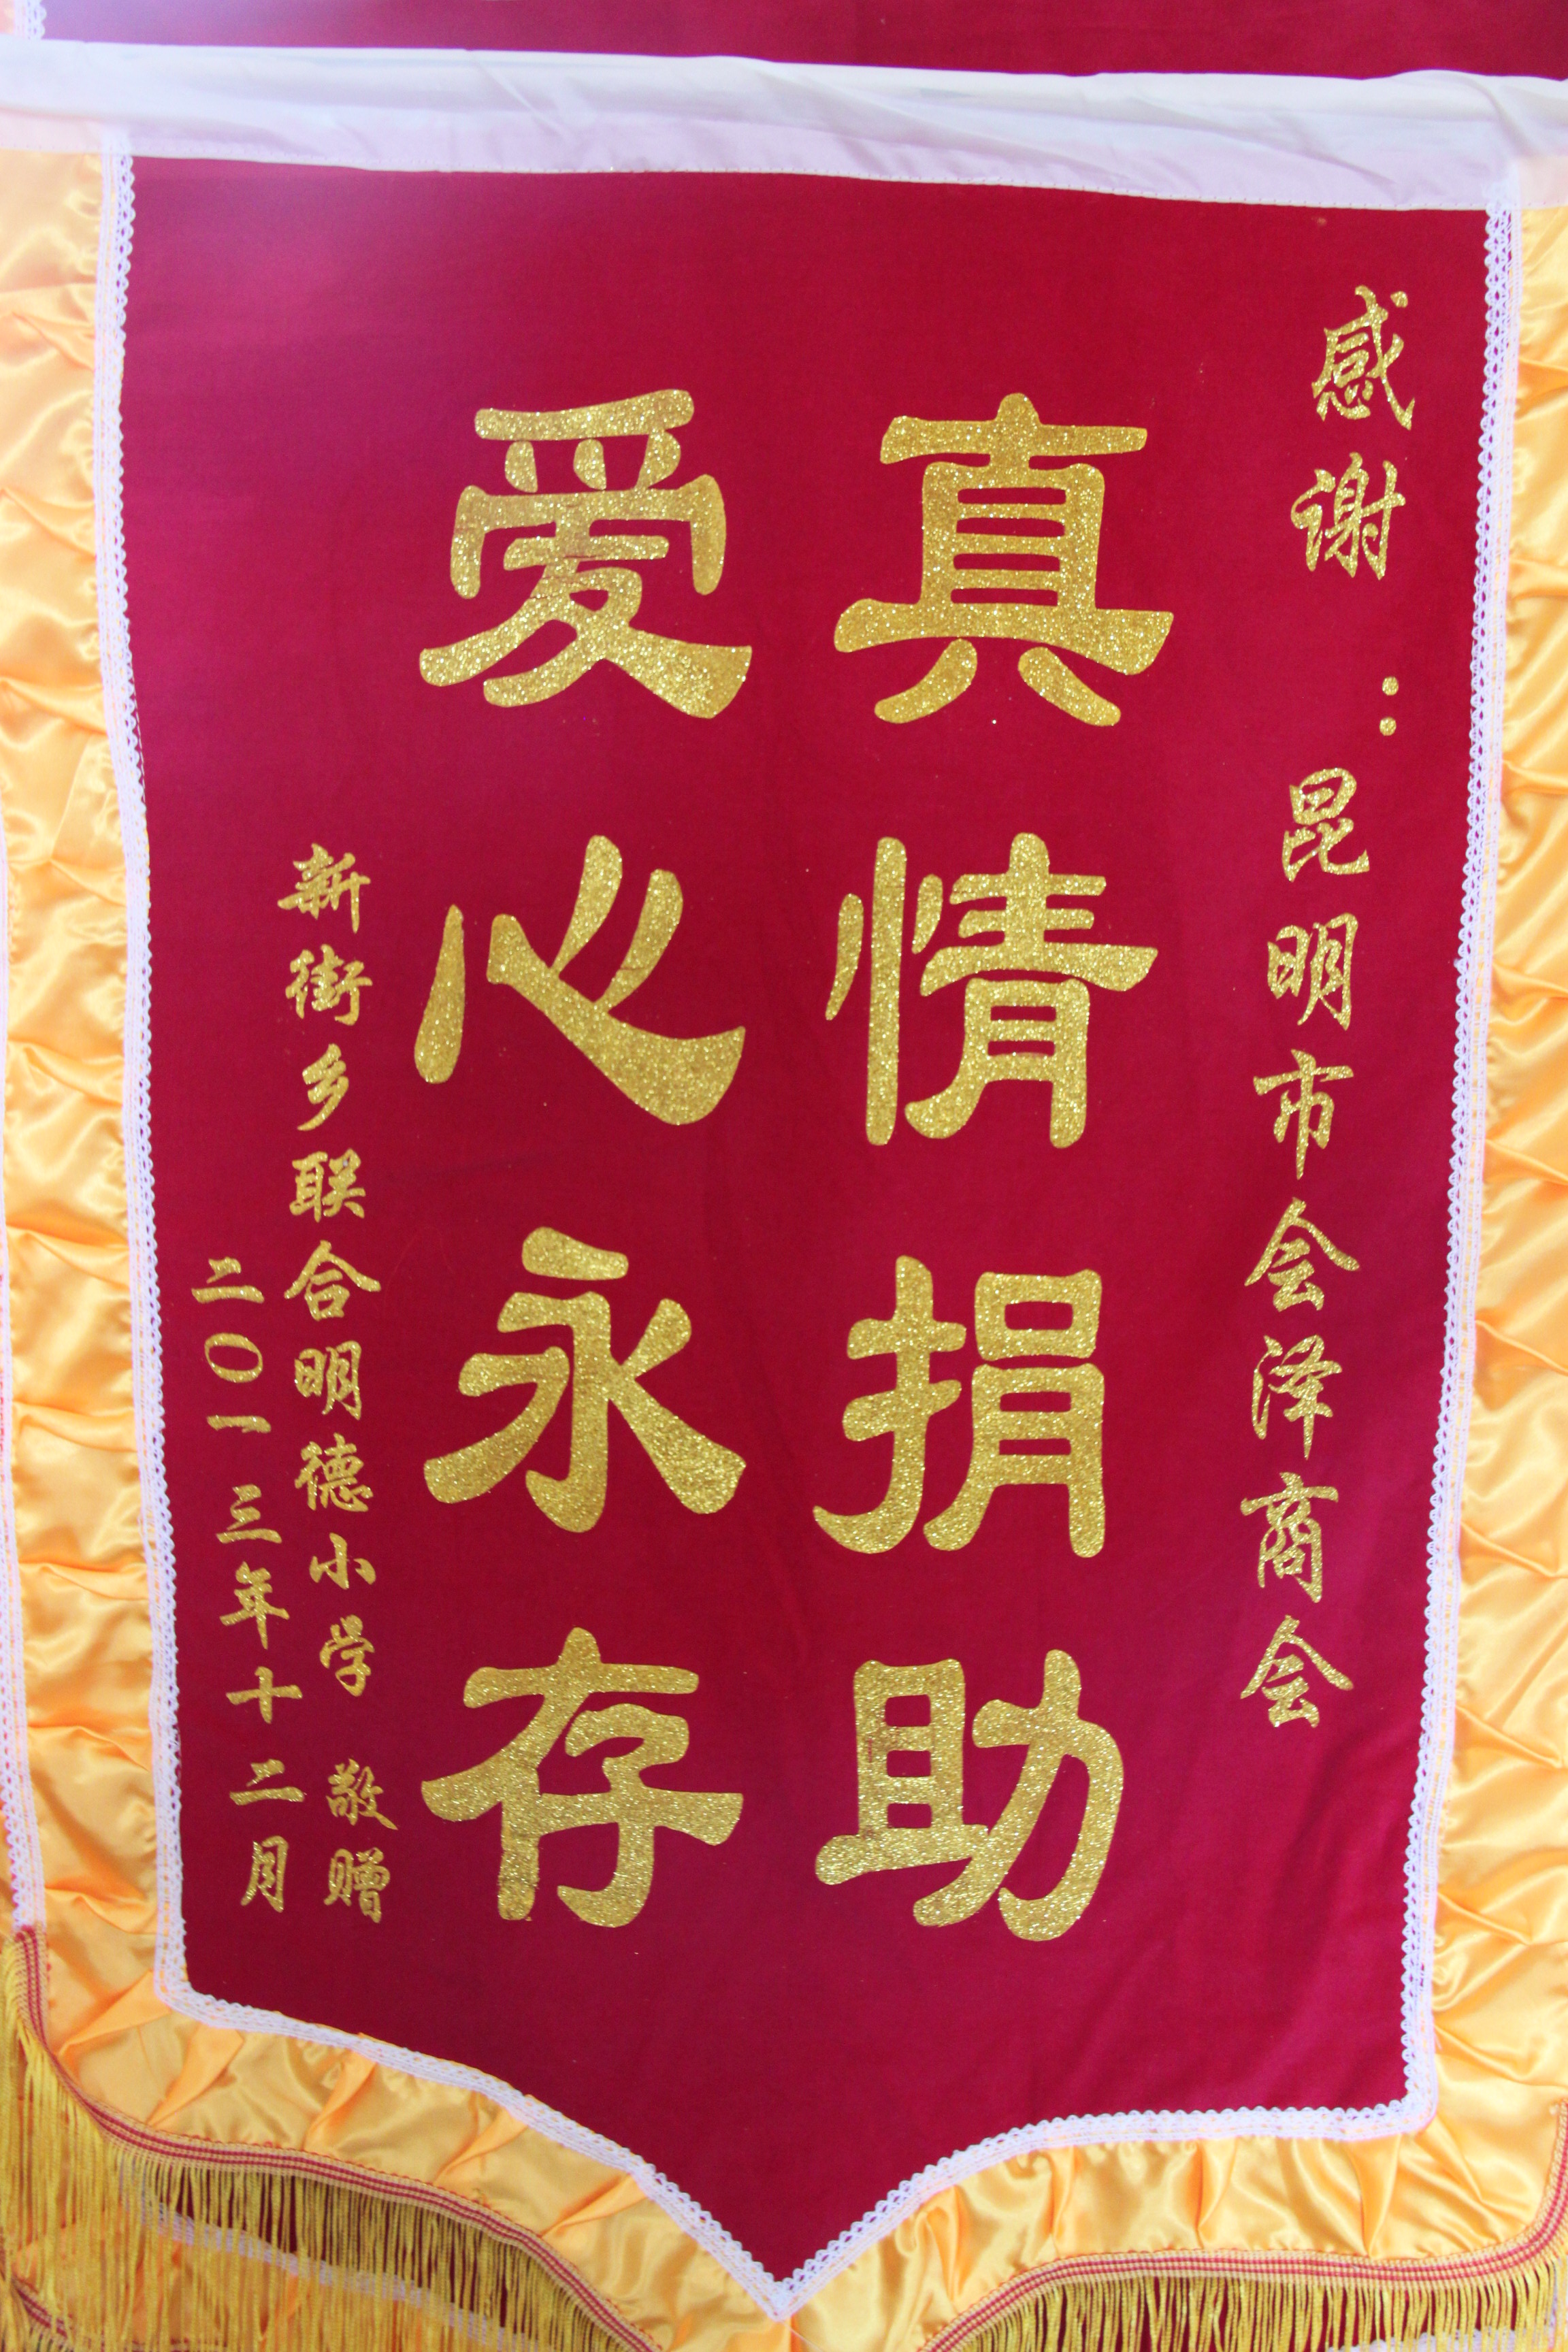 感谢：昆明市会泽商会
真情捐助
爱心永存
新街乡联合明德小学 敬赠
二〇一三年十二月